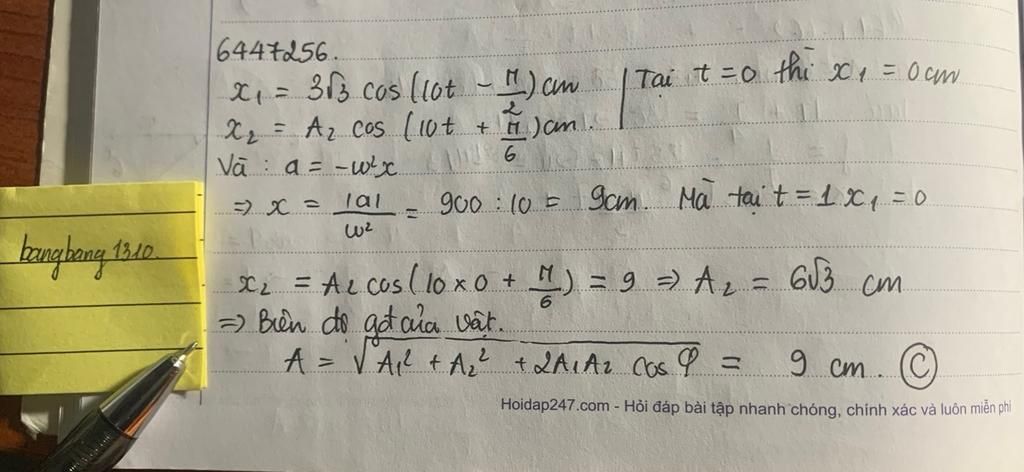 6447256.
x₁ = 3√3 cos(10t - π/2) cm | Tại t = 0 thì x₁ = 0 cm
x₂ = A₂ cos (10t + π/6) cm.
Và : a = -ω²x
⇒ x = |a|/ω² = 900 : 10 = 9cm. Mà tại t = 1 x₁ = 0
bangbang 1310.
x₂ = A₂ cos(10 × 0 + π/6) = 9 ⇒ A₂ = 6√3 cm
⇒ Biên độ gđ của vật.
A = √A₁² + A₂² + 2A₁A₂ cos φ = 9 cm. Ⓒ
Hoidap247.com - Hỏi đáp bài tập nhanh chóng, chính xác và luôn miễn phí